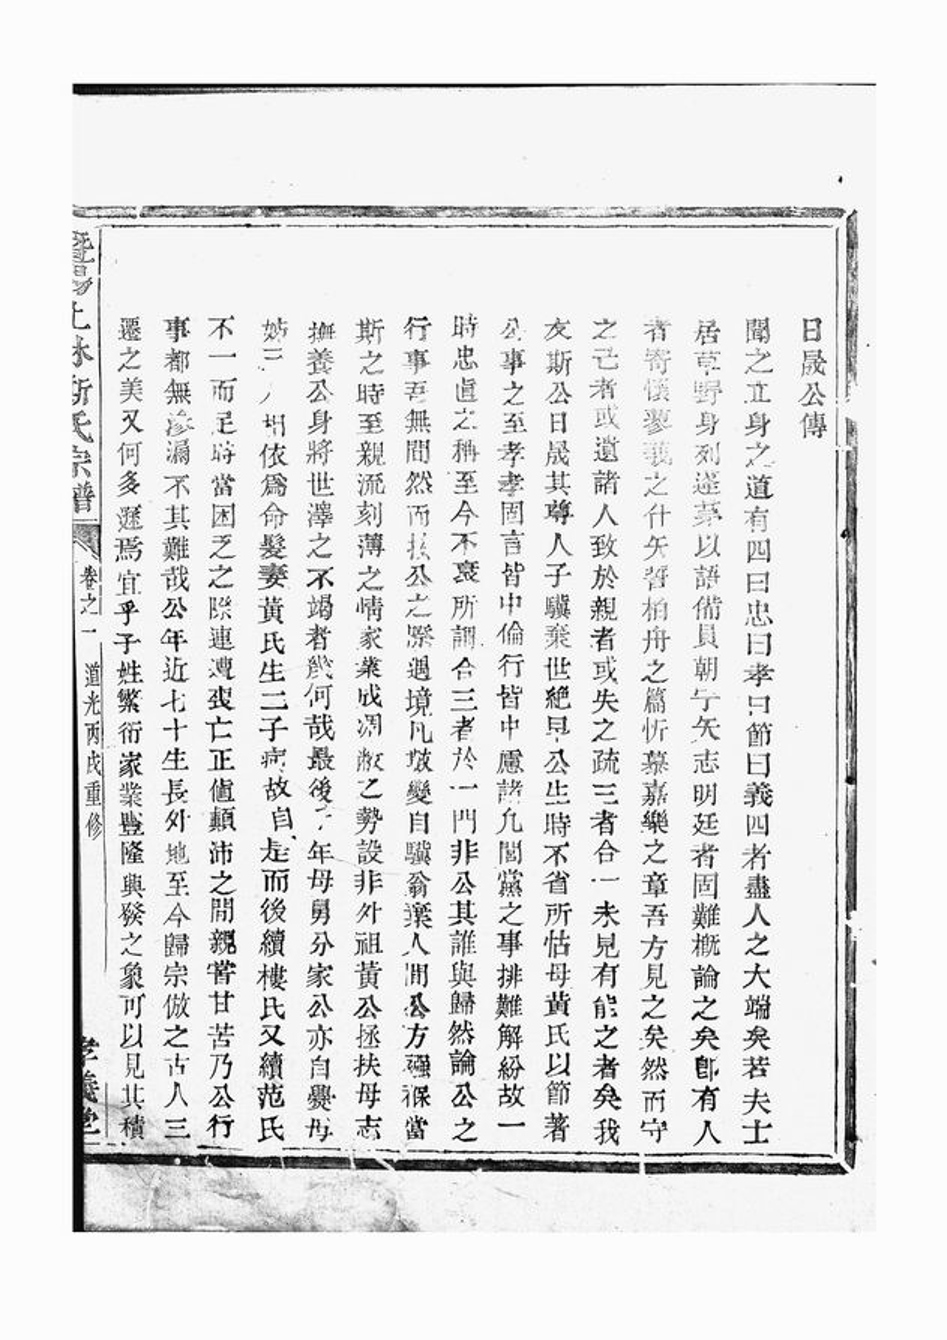 日晟公傳
聞之立身之道有四曰忠曰孝曰節曰義四者盡人之大端矣若夫士
居草野身列蓬茅以語備員朝宁矢志明廷者固難槪論之矣卽有人
者寄懷蓼莪之什矢誓柏舟之篇忻慕嘉樂之章吾方見之矣然而守
之己者或遺諸人致於親者或失之疏三者合一未見有能之者矣我
友斯公日晟其尊人子驥棄世絶早公生時不省所怙母黃氏以節著
公事之至孝孝固言皆中倫行皆中慮諸凡閭黨之事排難解紛故一
時忠直之稱至今不衰所謂合三者於一門非公其誰與歸然論公之
行事吾無間然而按公之際遇境凡數變自驥翁棄人間公方襁褓當
斯之時至親流刻薄之情家業成凋敝之勢設非外祖黃公拯扶母志
撫養公身將世澤之不竭者幾何哉最後 年母舅分家公亦自爨母
姊三人相依爲命髮妻黃氏生二子病故自是而後續樓氏又續范氏
不一而足時當困乏之際連遭喪亡正値顛沛之間親嘗甘苦乃公行
事都無滲漏不其難哉公年近七十生長外地至今歸宗倣之古人三
遷之美又何多遜焉宜乎子姓繁衍家業豐隆興發之象可以見其積
暨陽上林斯氏宗譜
卷之一
道光丙戌重修
孝義堂